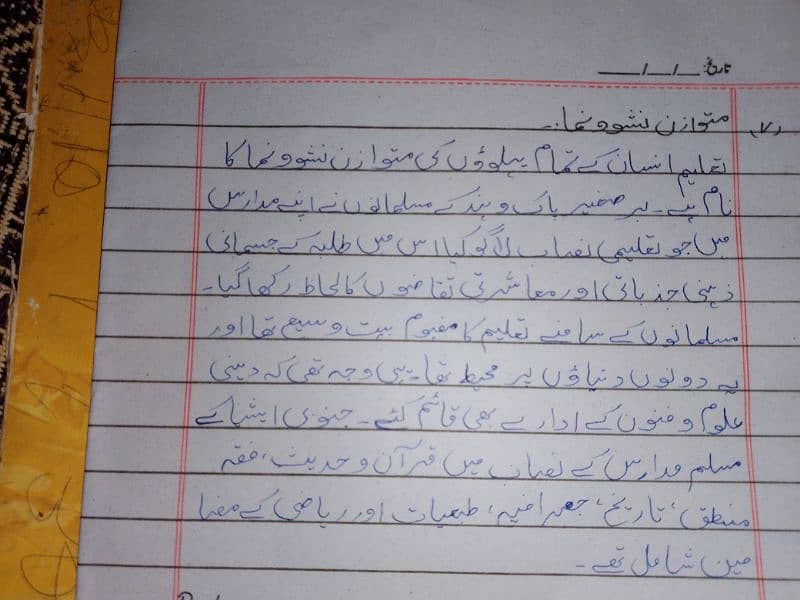 تاریخ: __/__/__
(۷) متوازن نشوونما:۔
تعلیم انسان کے تمام پہلوؤں کی متوازن نشوونما کا
نام ہے۔ برصغیر پاک و ہند کے مسلمانوں نے اپنے مدارس
میں جو تعلیمی نصاب لاگو کیا اس میں طلبہ کے جسمانی
ذہنی جذباتی اور معاشرتی تقاضوں کا لحاظ رکھا گیا۔
مسلمانوں کے سامنے تعلیم کا مفہوم بہت وسیع تھا اور
یہ دونوں دنیاؤں پر محیط تھا۔ یہی وجہ تھی کہ دینی
علوم و فنون کے ادارے بھی قائم کئے۔ جنوبی ایشیا کے
مسلم مدارس کے نصاب میں قرآن و حدیث، فقہ
منطق، تاریخ، جغرافیہ، طبعیات اور ریاضی کے مضا
مین شامل تھے۔